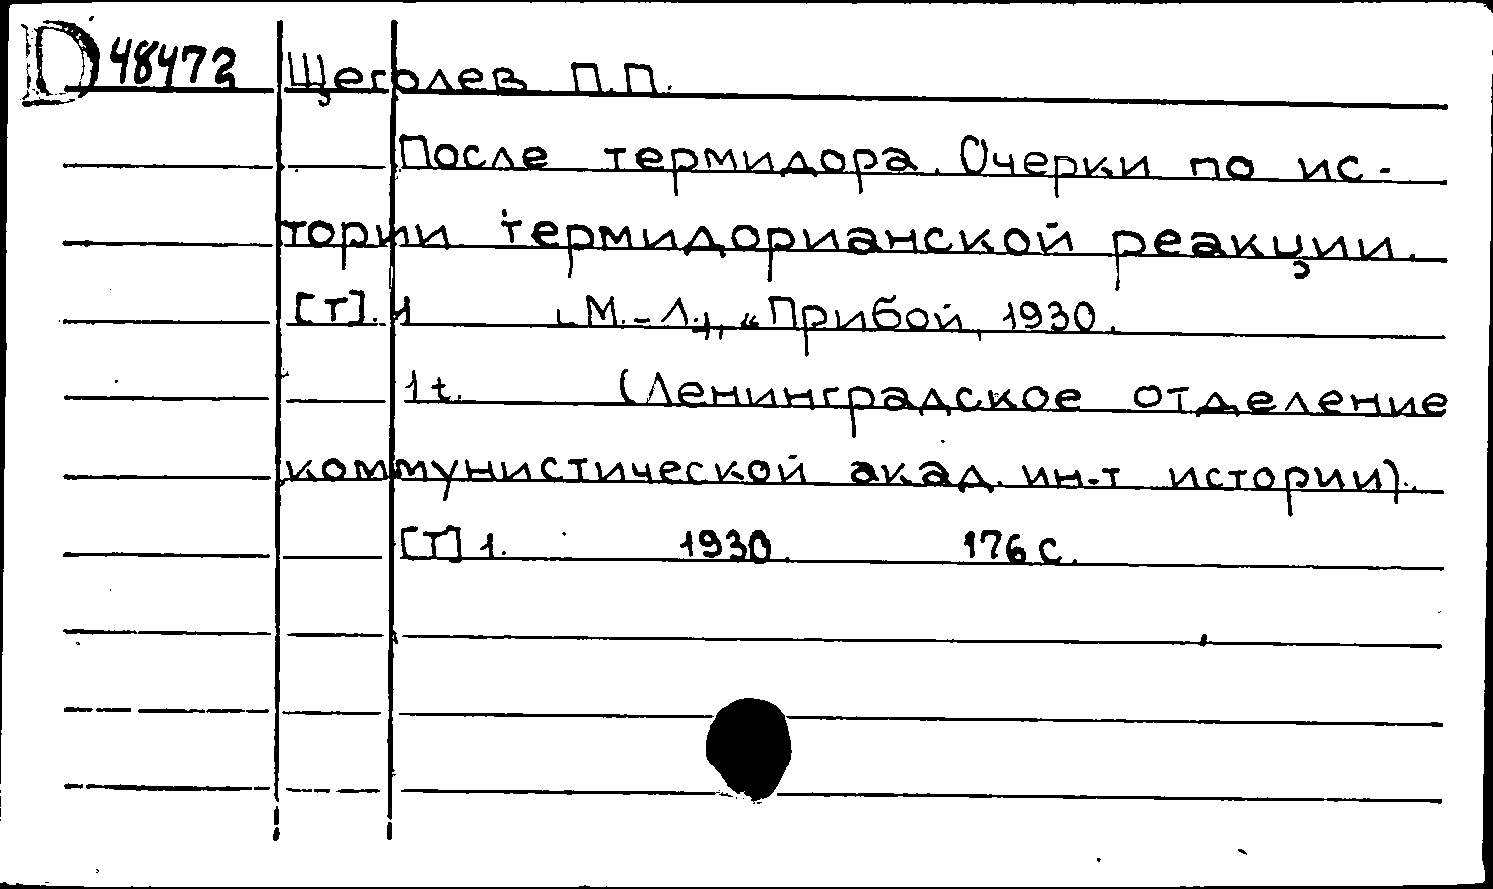 D 48472 Щеголев П.П.
После термидора. Очерки по ис-
тории термидорианской реакции.
[Т]. 1 [М.-Л.], „Прибой, 1930.
1 t. (Ленинградское отделение
коммунистической акад. ин-т истории).
[Т] 1. 1930. 176 с.